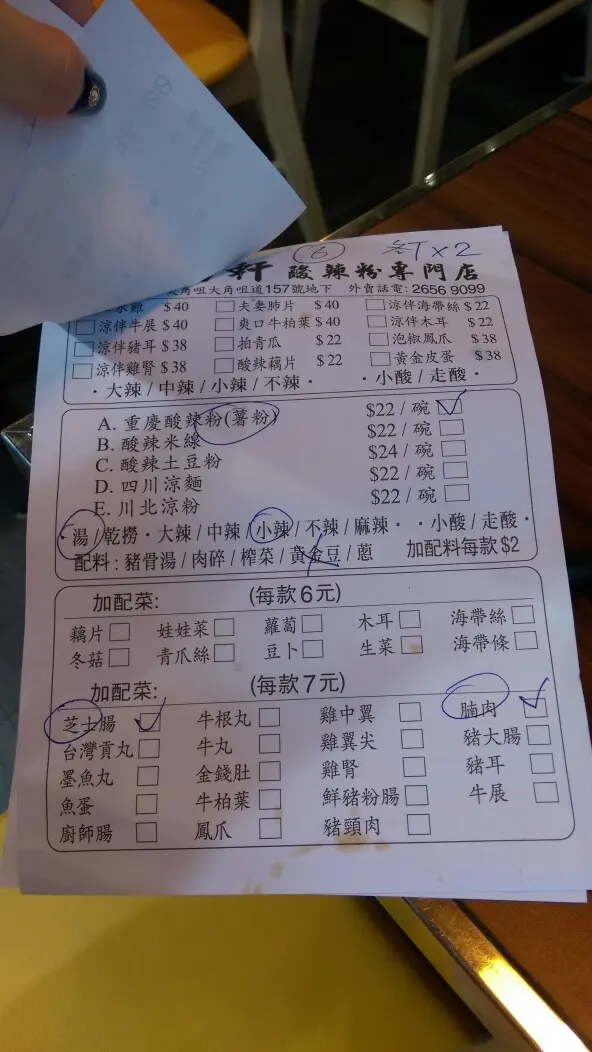 6 冬T x 2
軒 酸辣粉專門店
大角咀大角咀道157號地下 外賣話電: 2656 9099
水雞 $40 夫妻肺片 $40 涼伴海帶絲 $22
涼伴牛展 $40 爽口牛柏葉 $40 涼伴木耳 $22
涼伴豬耳 $38 拍青瓜 $22 泡椒鳳爪 $38
涼伴雞腎 $38 酸辣藕片 $22 黃金皮蛋 $38
·大辣/中辣/小辣/不辣· ·小酸/走酸·
A. 重慶酸辣粉(薯粉) $22 / 碗
B. 酸辣米線 $22 / 碗
C. 酸辣土豆粉 $24 / 碗
D. 四川涼麵 $22 / 碗
E. 川北涼粉 $22 / 碗
·湯/乾撈·大辣/中辣/小辣/不辣/麻辣· ·小酸/走酸·
配料:豬骨湯/肉碎/榨菜/黃金豆/蔥 加配料每款$2
加配菜: (每款6元)
藕片 娃娃菜 蘿蔔 木耳 海帶絲
冬菇 青瓜絲 豆卜 生菜 海帶條
加配菜: (每款7元)
芝士腸 牛根丸 雞中翼 腩肉
台灣貢丸 牛丸 雞翼尖 豬大腸
墨魚丸 金錢肚 雞腎 豬耳
魚蛋 牛柏葉 鮮豬粉腸 牛展
廚師腸 鳳爪 豬頸肉